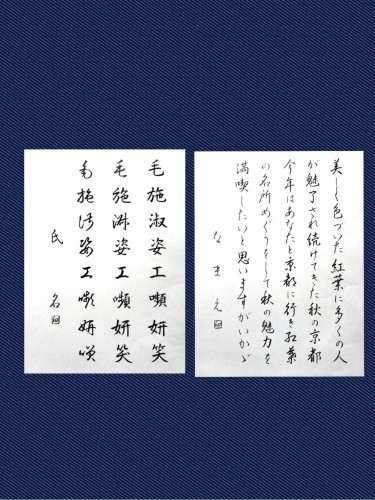 美しく色づいた紅葉に多くの人
が魅了され続けてきた秋の京都
今年はあなたと京都に行き紅葉
の名所めぐりをして秋の魅力を
満喫したいと思いますがいかゞ
なまえ
毛施淑姿工嚬妍笑
毛施淑姿工嚬妍笑
毛施淑姿工嚬妍笑
氏名